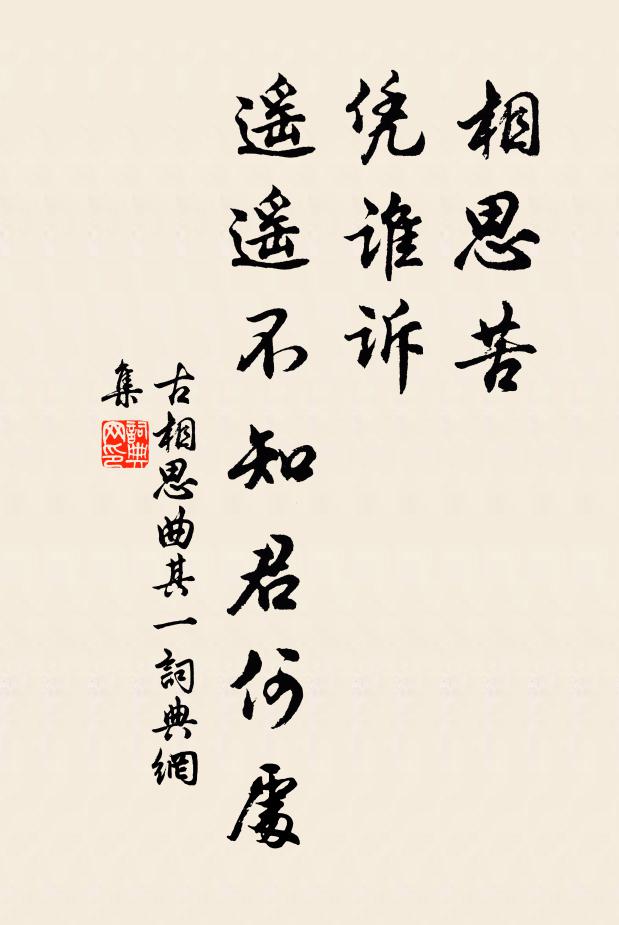 相思苦
凭谁诉
遥遥不知君何處
古相思曲其一詞典網
集
詞典
网印